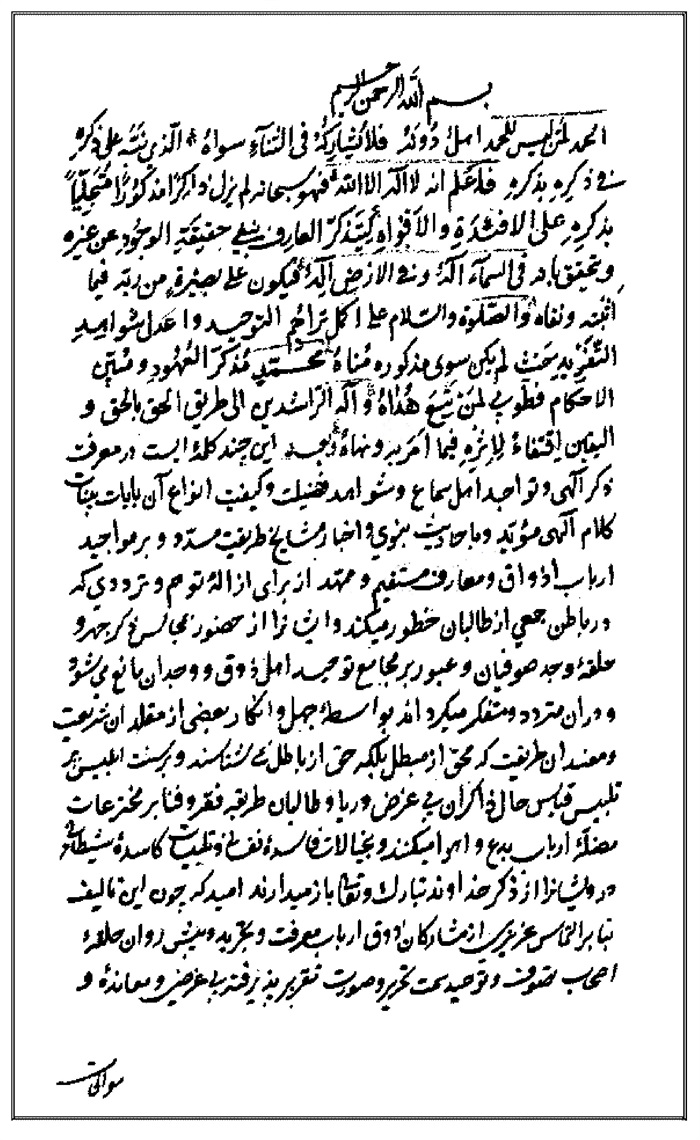 بسم الله الرحمن الرحیم
الحمد لمن لیس للحمد اهل دونه فلا یشارکه فی الثناء سواه الذی نبه علی ذکره
فی ذکره بذکره فاعلم انه لا اله الا الله فهو سبحانه لم یزل ذاکرا مذکورا متجلیا
بذکره علی الافئدة والافواه لیتذکر العارف بنفی حقیقة الوجود عن غیره
و تحقق بانه فی السماء اله و فی الارض اله فیکون علی بصیرة من ربه فیما
اثبته و نفاه والصلوة والسلام علی اکمل تراهم التوحید و اعدل شواهد
التفرید بحیث لم یکن سوی مذکوره مناه محمد مذکر العهود و مبین
الاحکام فطوبی لمن تبع هداه و آله الراشدین الی طریق الحق بالحق و
الیقین اقتفاء لاثره فیما امر به و نهاه و بعد این چند کلمه ایست در معرفت
ذکر آلهی و تواجد اهل سماع و شواهد فضیلت و کیفیت انواع آن بایات بینات
کلام آلهی مؤید و باحادیث نبوی و اخبار مشایخ طریقت مسدد و بر مواجید
ارباب اذواق و معارف مستقیم و ممهد از برای ازالهٔ توهم و ترددی که
در باطن جمعی از طالبان خطور میکند و ایشانرا از حضور مجالس ذکر جهر و
حلقهٔ وجد صوفیان و عبور بر مجامع توحید اهل ذوق و وجدان مانع می شود
و در ان متردد و متفکر میکردند بواسطهٔ جهل و انکار بعضی از مقلدان شریعت
و معندان طریقت که محق از مبطل بلکه حق از باطل نشناسند و بر سنت ابلیس پر
تلبیس قیاس حال ذاکران بی غرض و ریا و طالبان طریقه فقر و فنا بر مخترعات
مضلهٔ ارباب بدع و اهوا میکنند و بخیالات فاسدهٔ نفسانی و تلبیسات کاسدهٔ شیطانی
درویشانرا از ذکر خداوند تبارک و تعالی باز میدارند امید که چون این تالیف
بنا بر التماس عزیزی از مشارکان ذوق ارباب معرفت و تجرید و پیش روان حلقهٔ
اصحاب تصوف و توحید سمت تحریر و صورت تقریر پذیرفته بی غرضی و معاندهٔ و